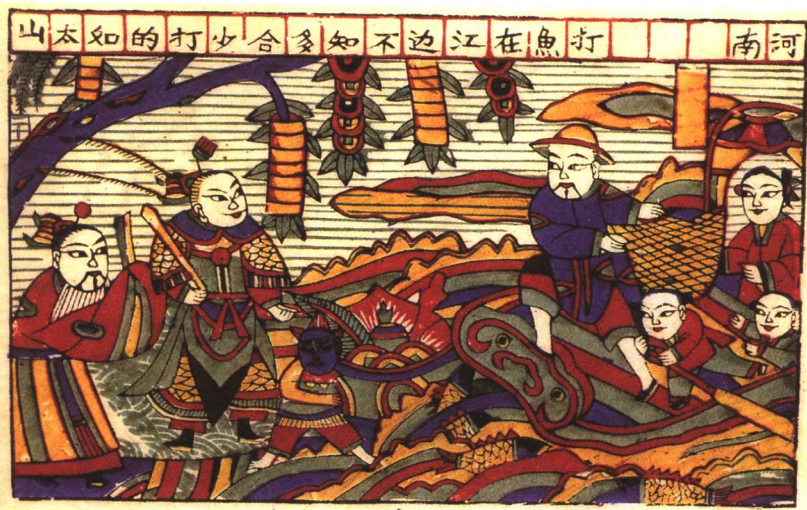 河南　　　打魚在江边不知多合少打的如太山